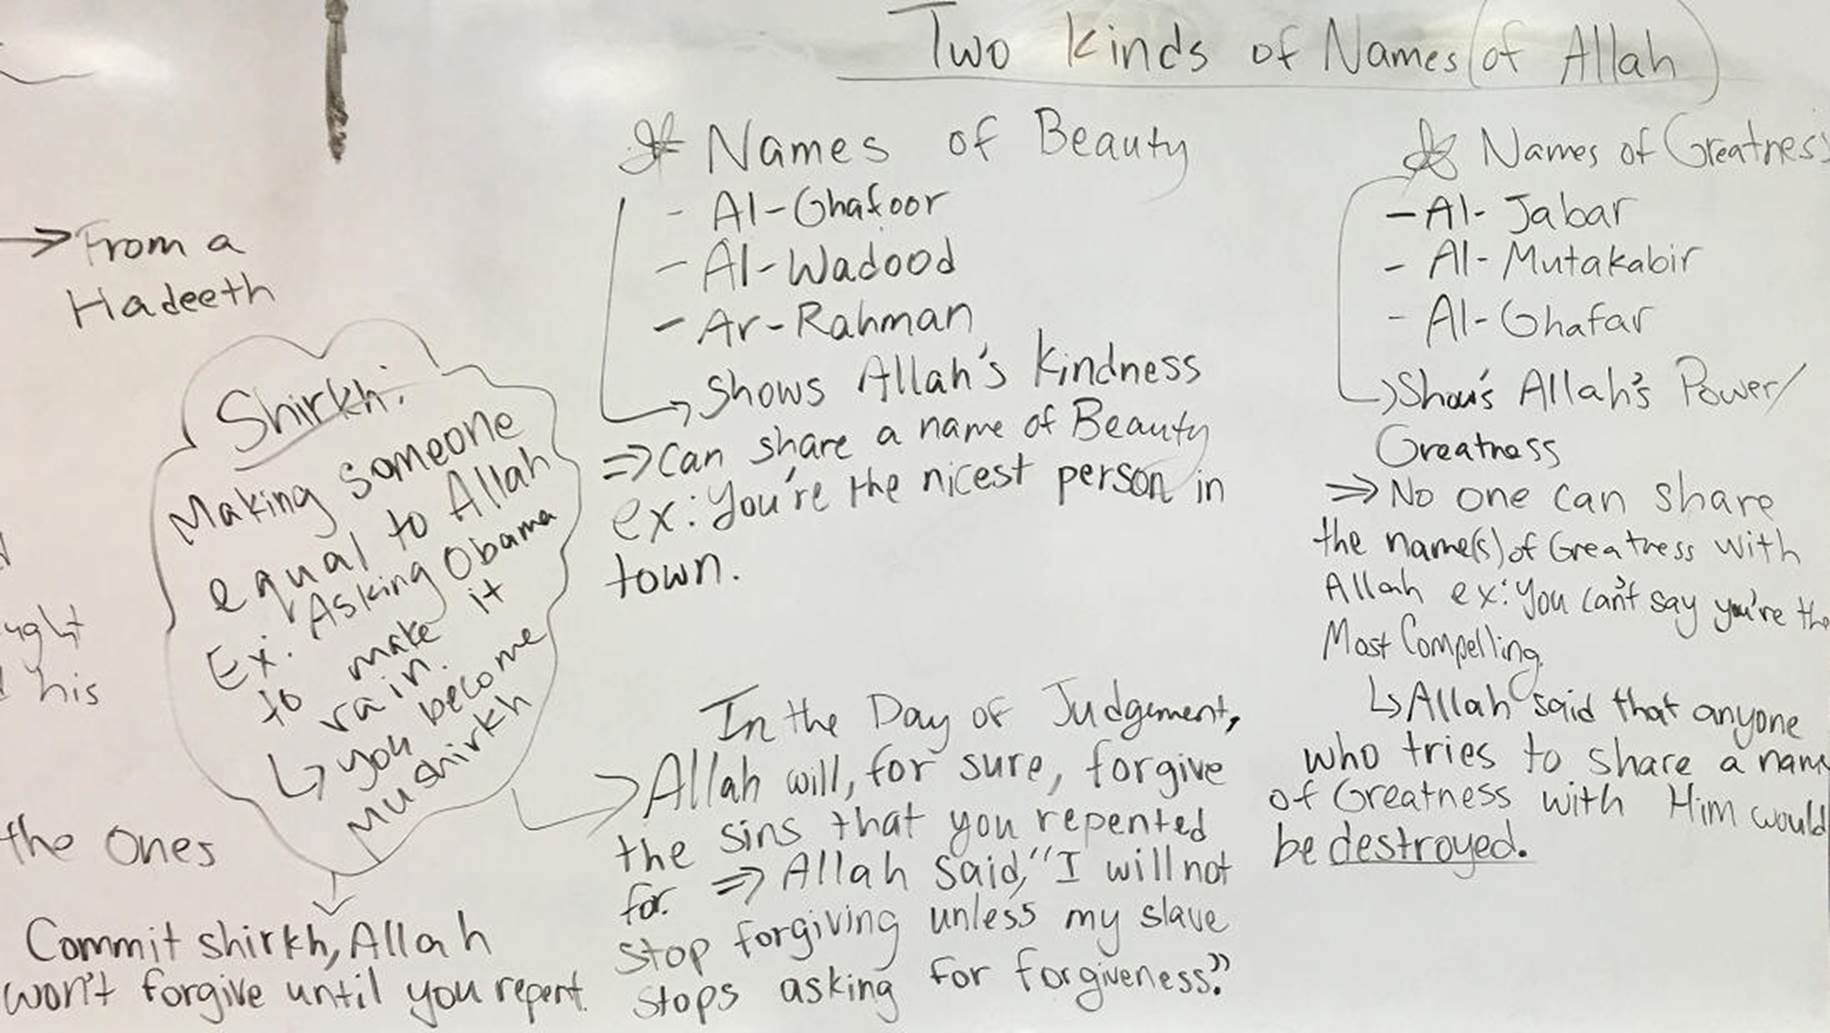 Two Kinds of Names of Allah
Names of Beauty
- Al-Ghafoor
- Al-Wadood
- Ar-Rahman
Shows Allah's Kindness
⇒ Can share a name of Beauty
ex: You're the nicest person in
town.
Names of Greatness
- Al-Jabar
- Al-Mutakabir
- Al-Ghafar
Shows Allah's Power/
Greatness
⇒ No one can share
the name(s) of Greatness with
Allah ex: You can't say you're the
Most Compelling.
↳ Allah said that anyone
who tries to share a name
of Greatness with Him would
be destroyed.
→ From a
Hadeeth
Shirkh:
Making someone
equal to Allah
Ex: Asking Obama
to make it
rain.
↳ you become
Mushirkh
In the Day of Judgement,
Allah will, for sure, forgive
the sins that you repented
for. ⇒ Allah said, "I will not
stop forgiving unless my slave
stops asking for forgiveness."
his
the Ones
Commit shirkh, Allah
won't forgive until you repent.